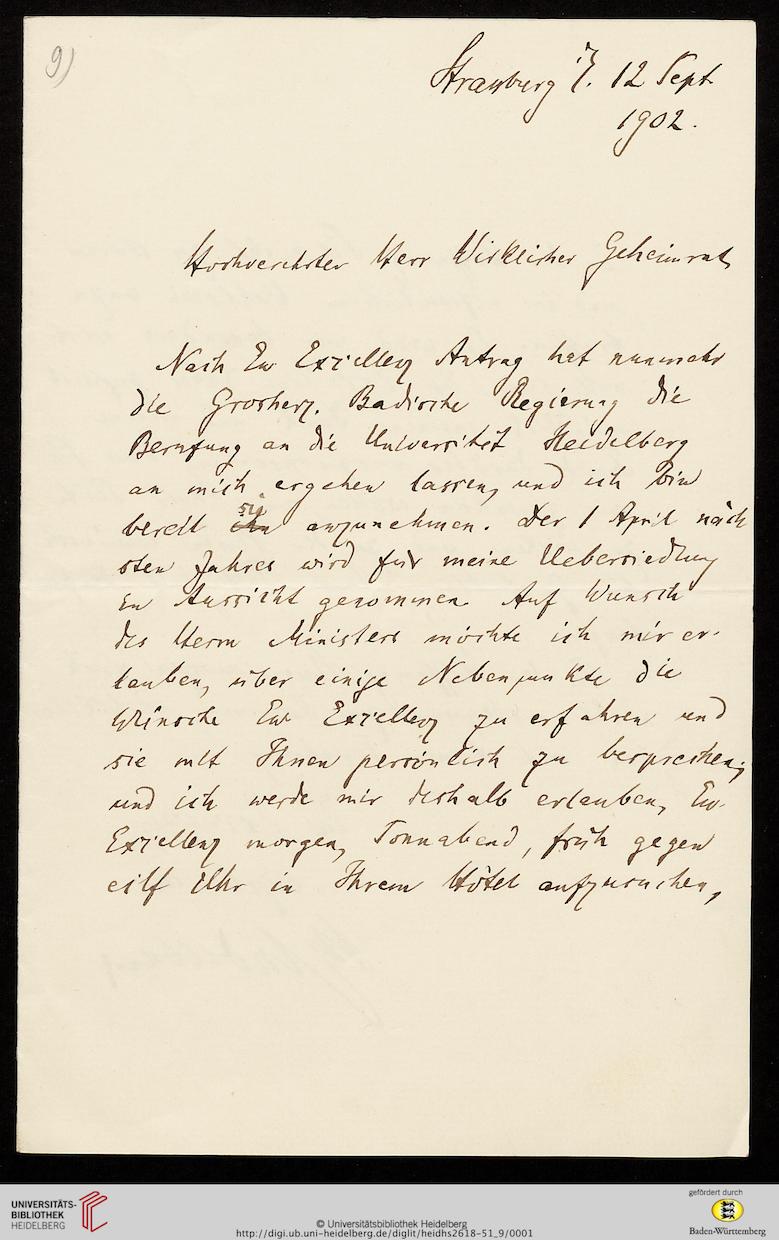 9)
Strassburg i/E. 12 Sept
1902.
Hochverehrter Herr Wirklicher Geheimrat,
Nach Ew Exzellenz Antrag hat nunmehr
die Grosherz. Badische Regierung die
Berufung an die Universität Heidelberg
an mich ergehen lassen, und ich bin
bereit sie anzunehmen. Der 1 April näch
sten Jahres wird für meine Uebersiedlung
in Aussicht genommen. Auf Wunsch
des Herrn Ministers möchte ich mir er-
lauben, über einige Nebenpunkte die
Wünsche Ew Exzellenz zu erfahren und
sie mit Ihnen persönlich zu besprechen;
und ich werde mir deshalb erlauben, Ew.
Exzellenz morgen, Sonnabend, früh gegen
eilf Uhr in Ihrem Hôtel aufzusuchen,
UNIVERSITÄTS-
BIBLIOTHEK
HEIDELBERG
© Universitätsbibliothek Heidelberg
http://digi.ub.uni-heidelberg.de/diglit/heidhs2618-51_9/0001
gefördert durch
Baden-Württemberg